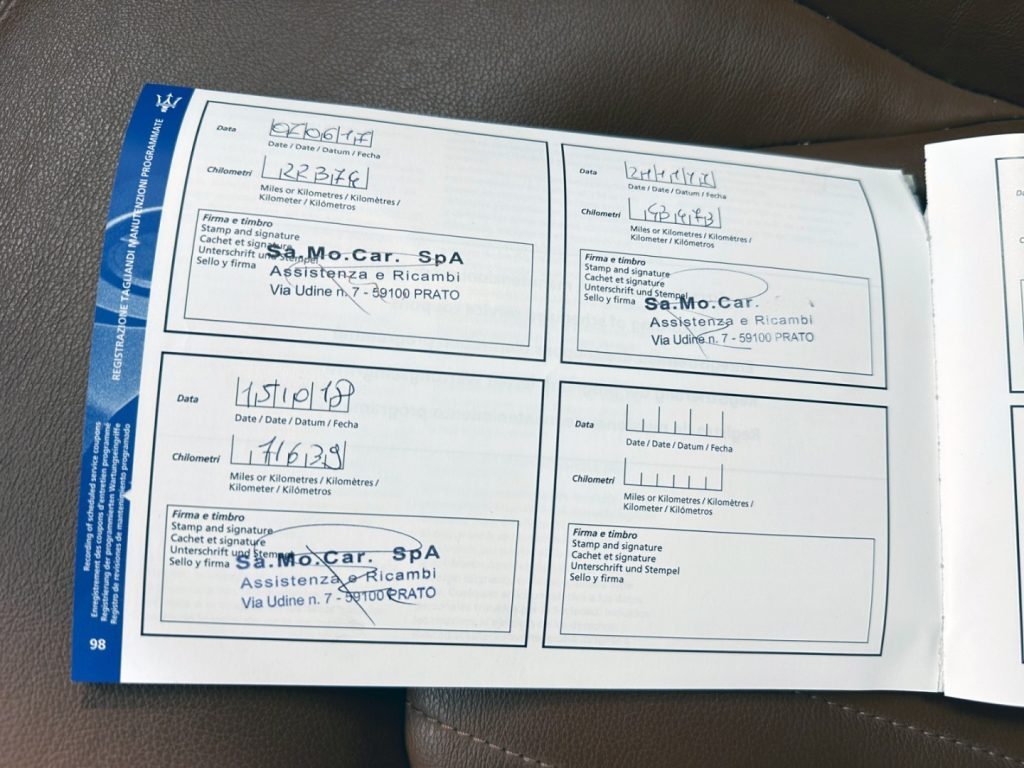 REGISTRAZIONE TAGLIANDI MANUTENZIONI PROGRAMMATE
Recording of scheduled service coupons
Enregistrement des coupons d'entretien programmé
Registrierung der programmierten Wartungseingriffe
Registro de revisiones de mantenimiento programado
98
Data 07 06 17
Date / Date / Datum / Fecha
Chilometri
Miles or Kilometres / Kilomètres /
Kilometer / Kilómetros
Firma e timbro
Stamp and signature
Cachet et signature
Unterschrift und Stempel
Sello y firma
Sa.Mo.Car. SpA
Assistenza e Ricambi
Via Udine n. 7 - 59100 PRATO
Data
Date / Date / Datum / Fecha
Chilometri
Miles or Kilometres / Kilomètres /
Kilometer / Kilómetros
Firma e timbro
Stamp and signature
Cachet et signature
Unterschrift und Stempel
Sello y firma
Sa.Mo.Car.
Assistenza e Ricambi
Via Udine n. 7 - 59100 PRATO
Data 15 10 18
Date / Date / Datum / Fecha
Chilometri 71639
Miles or Kilometres / Kilomètres /
Kilometer / Kilómetros
Firma e timbro
Stamp and signature
Cachet et signature
Unterschrift und Stempel
Sello y firma
Sa.Mo.Car. SpA
Assistenza e Ricambi
Via Udine n. 7 - 59100 PRATO
Data
Date / Date / Datum / Fecha
Chilometri
Miles or Kilometres / Kilomètres /
Kilometer / Kilómetros
Firma e timbro
Stamp and signature
Cachet et signature
Unterschrift und Stempel
Sello y firma